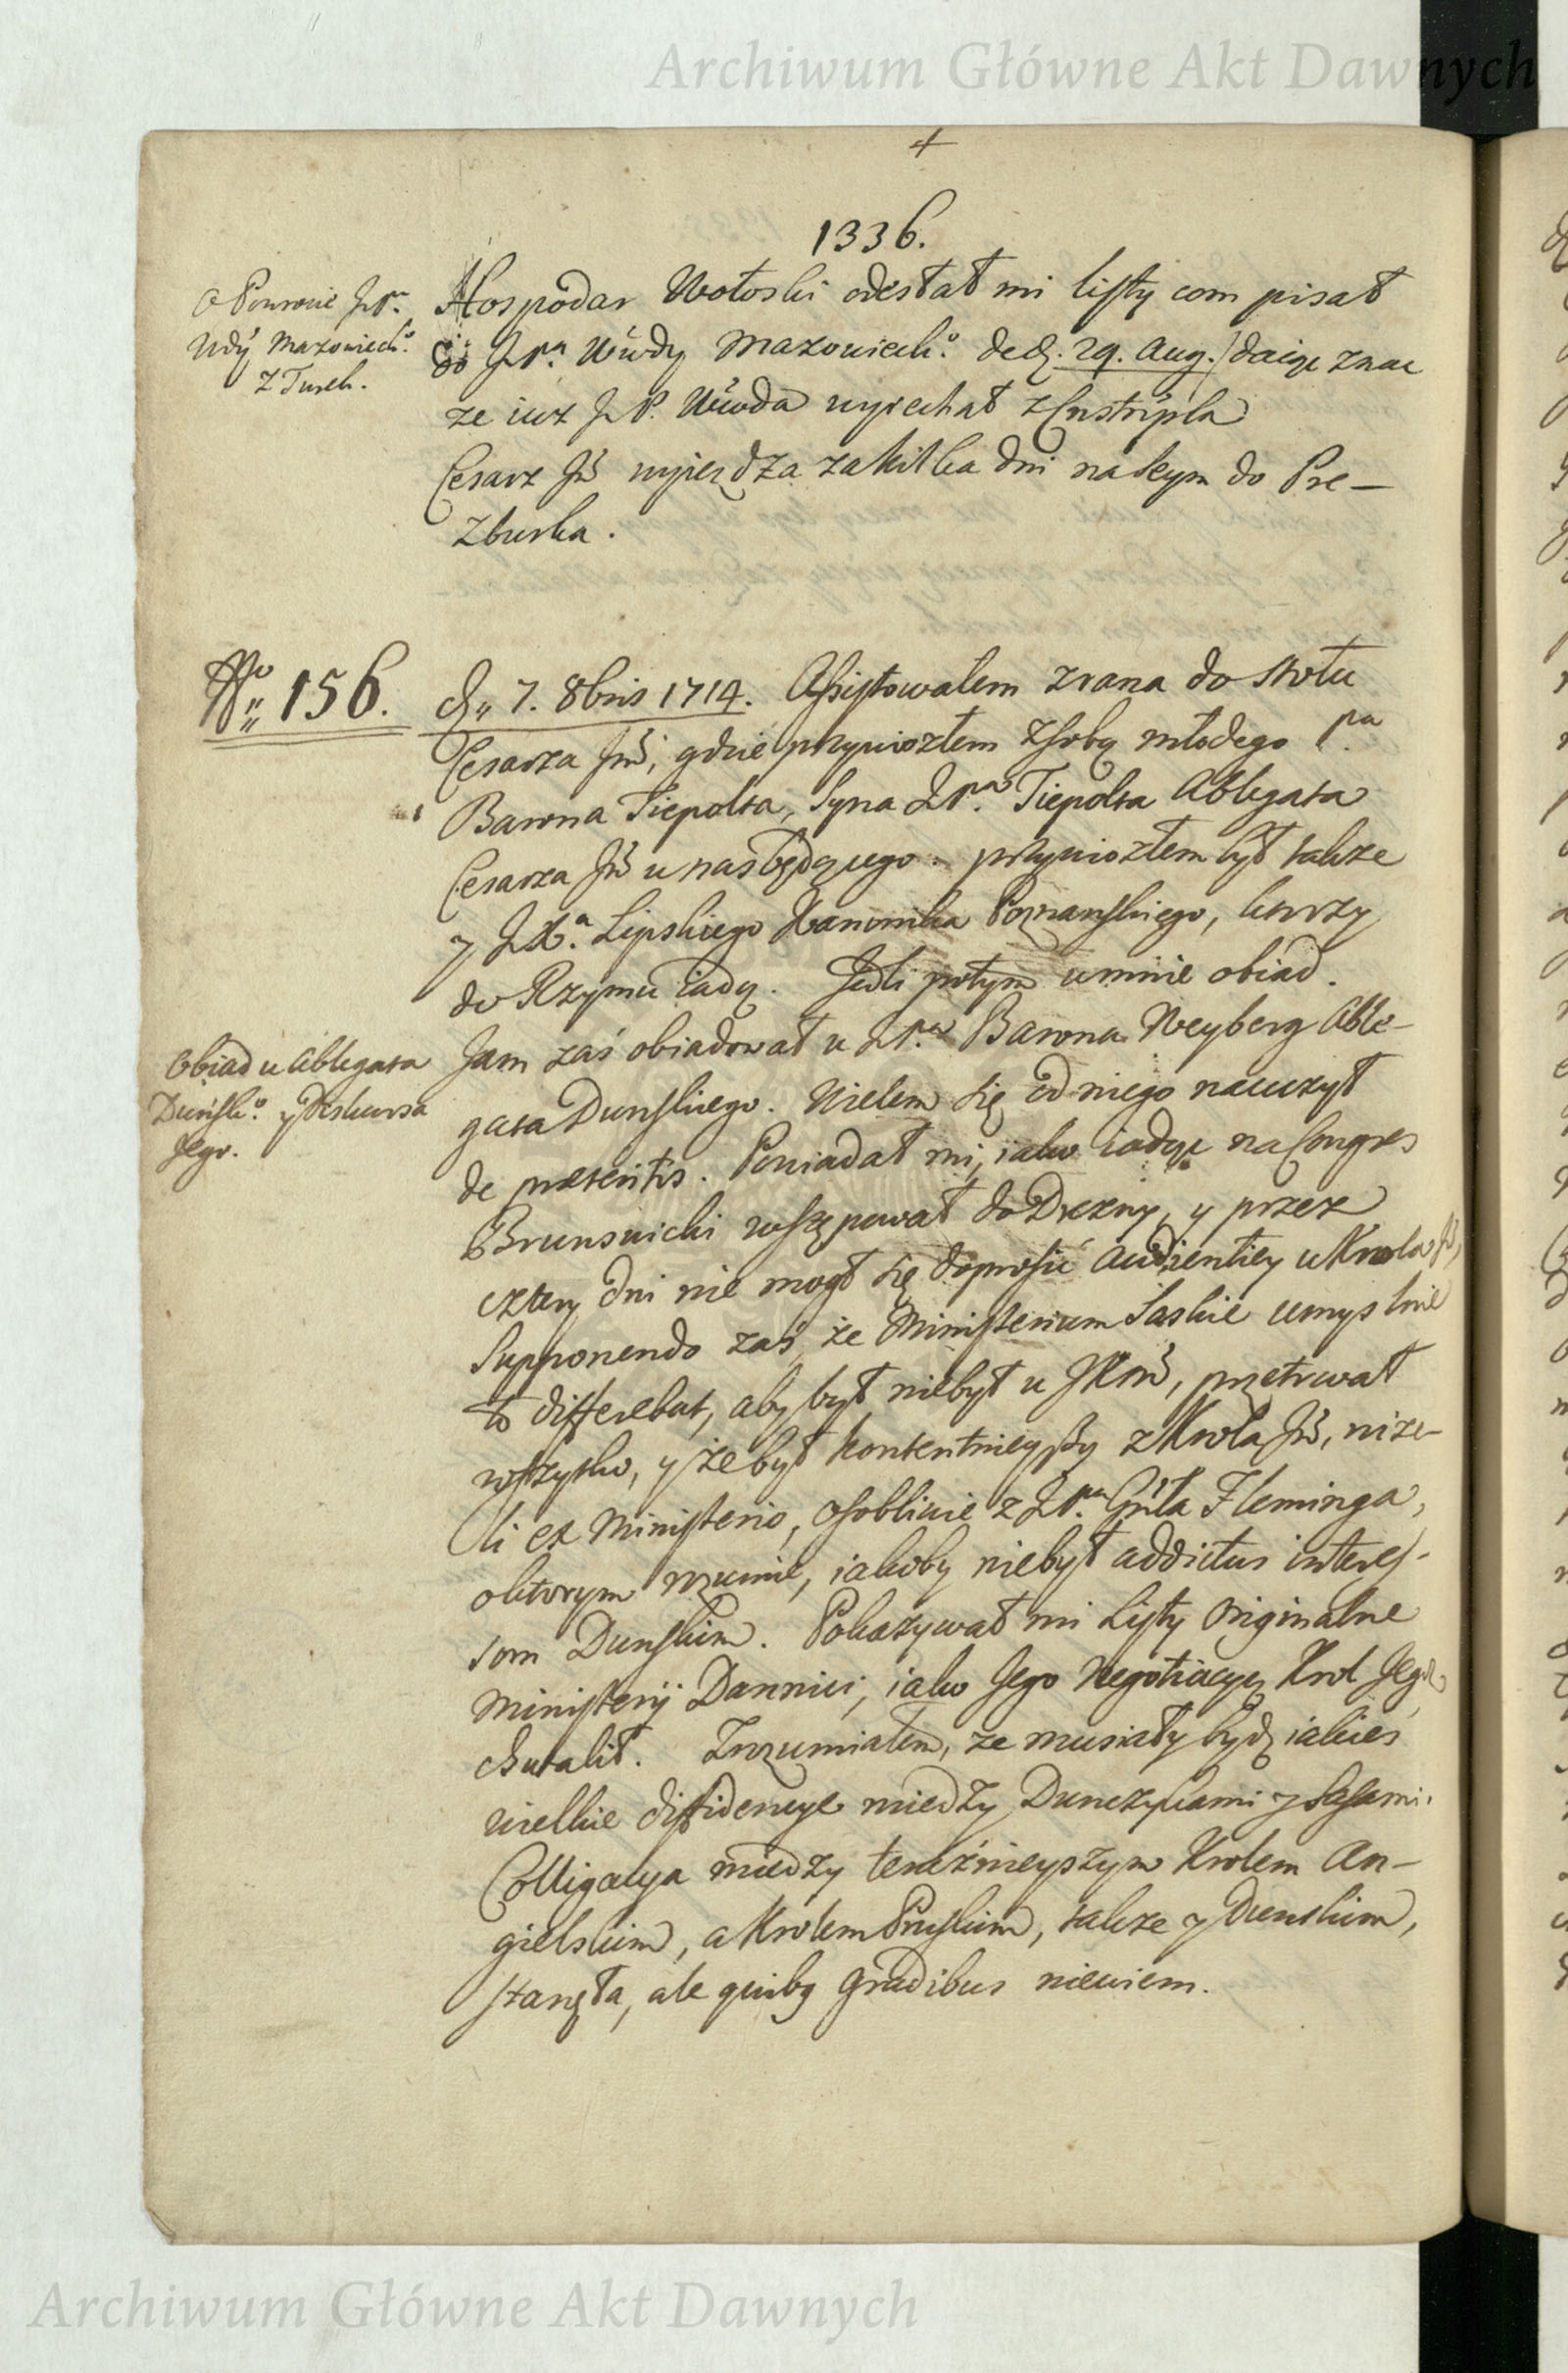 Archiwum Główne Akt Dawnych
1336.
O Powrocie JP.ª
Wdy Mazowieck.º
z Turch.
Hospodar Wołoski odesłał mi listy com pisał
do JP.ª Wwdy Mazowieck.º de d. 29. Aug. daiąc znac
ze iuz JP. Wwoda wyiechał z Cnstnpla
Cesarz Jmć wyiezdza za kilka dni na Seym do Pre-
zburka.
Nº 156.
d. 7. 8bris 1714. Assistowałem zrana do stołu
Cesarza Jmć, gdzie przywiozłem z sobą młodego Pª
Barona Tiepolta, Syna JP.ª Tiepolta Ablegata
Cesarza Jmć u nas będącego. przywiozłem był takze
y JX.ª Lipskiego Kanonika Poznanskiego, ktorzy
do Rzymu iadą. Jedli potym u mnie obiad.
Obiad u Ablegata
Dunsk.º y Diskursa
Jego.
Jam zaś obiadował u JP.ª Barona Weyberg Able-
gata Dunskiego. Wielem się od niego nauczył
de praesentis. Powiadał mi, iako iadąc na Congres
Brunswicki wstępował do Drezny, y przez
cztery dni nie mogł się doprosić Audientiey u Krola Jmć,
Supponendo zaś, że Ministerium Saskie umyslnie
to differebat, aby był niebył u JKMć, przetrwał
wszystko, y że był kontentnieyszy z Krola Jmć, niże-
li ex Ministerio, osobliwie z JP.ª Gnła Fleminga,
o ktorym rozumie, iakoby niebył addictus interes-
som Dunskim. Pokazywał mi Listy originalne
Ministerij Dannici, iako Jego Negotiacyę Krol Jego
chwalił. Zrozumiałem, ze musiały bydz iakieś
wielkie diffidencye między Dunczykami y Sasami.
Colligacya między teraźnieyszym Krolem An-
gielskim, a Krolem Pruskim, takze y Dunskim,
stanęła, ale quibg gradibus niewiem.
Archiwum Główne Akt Dawnych